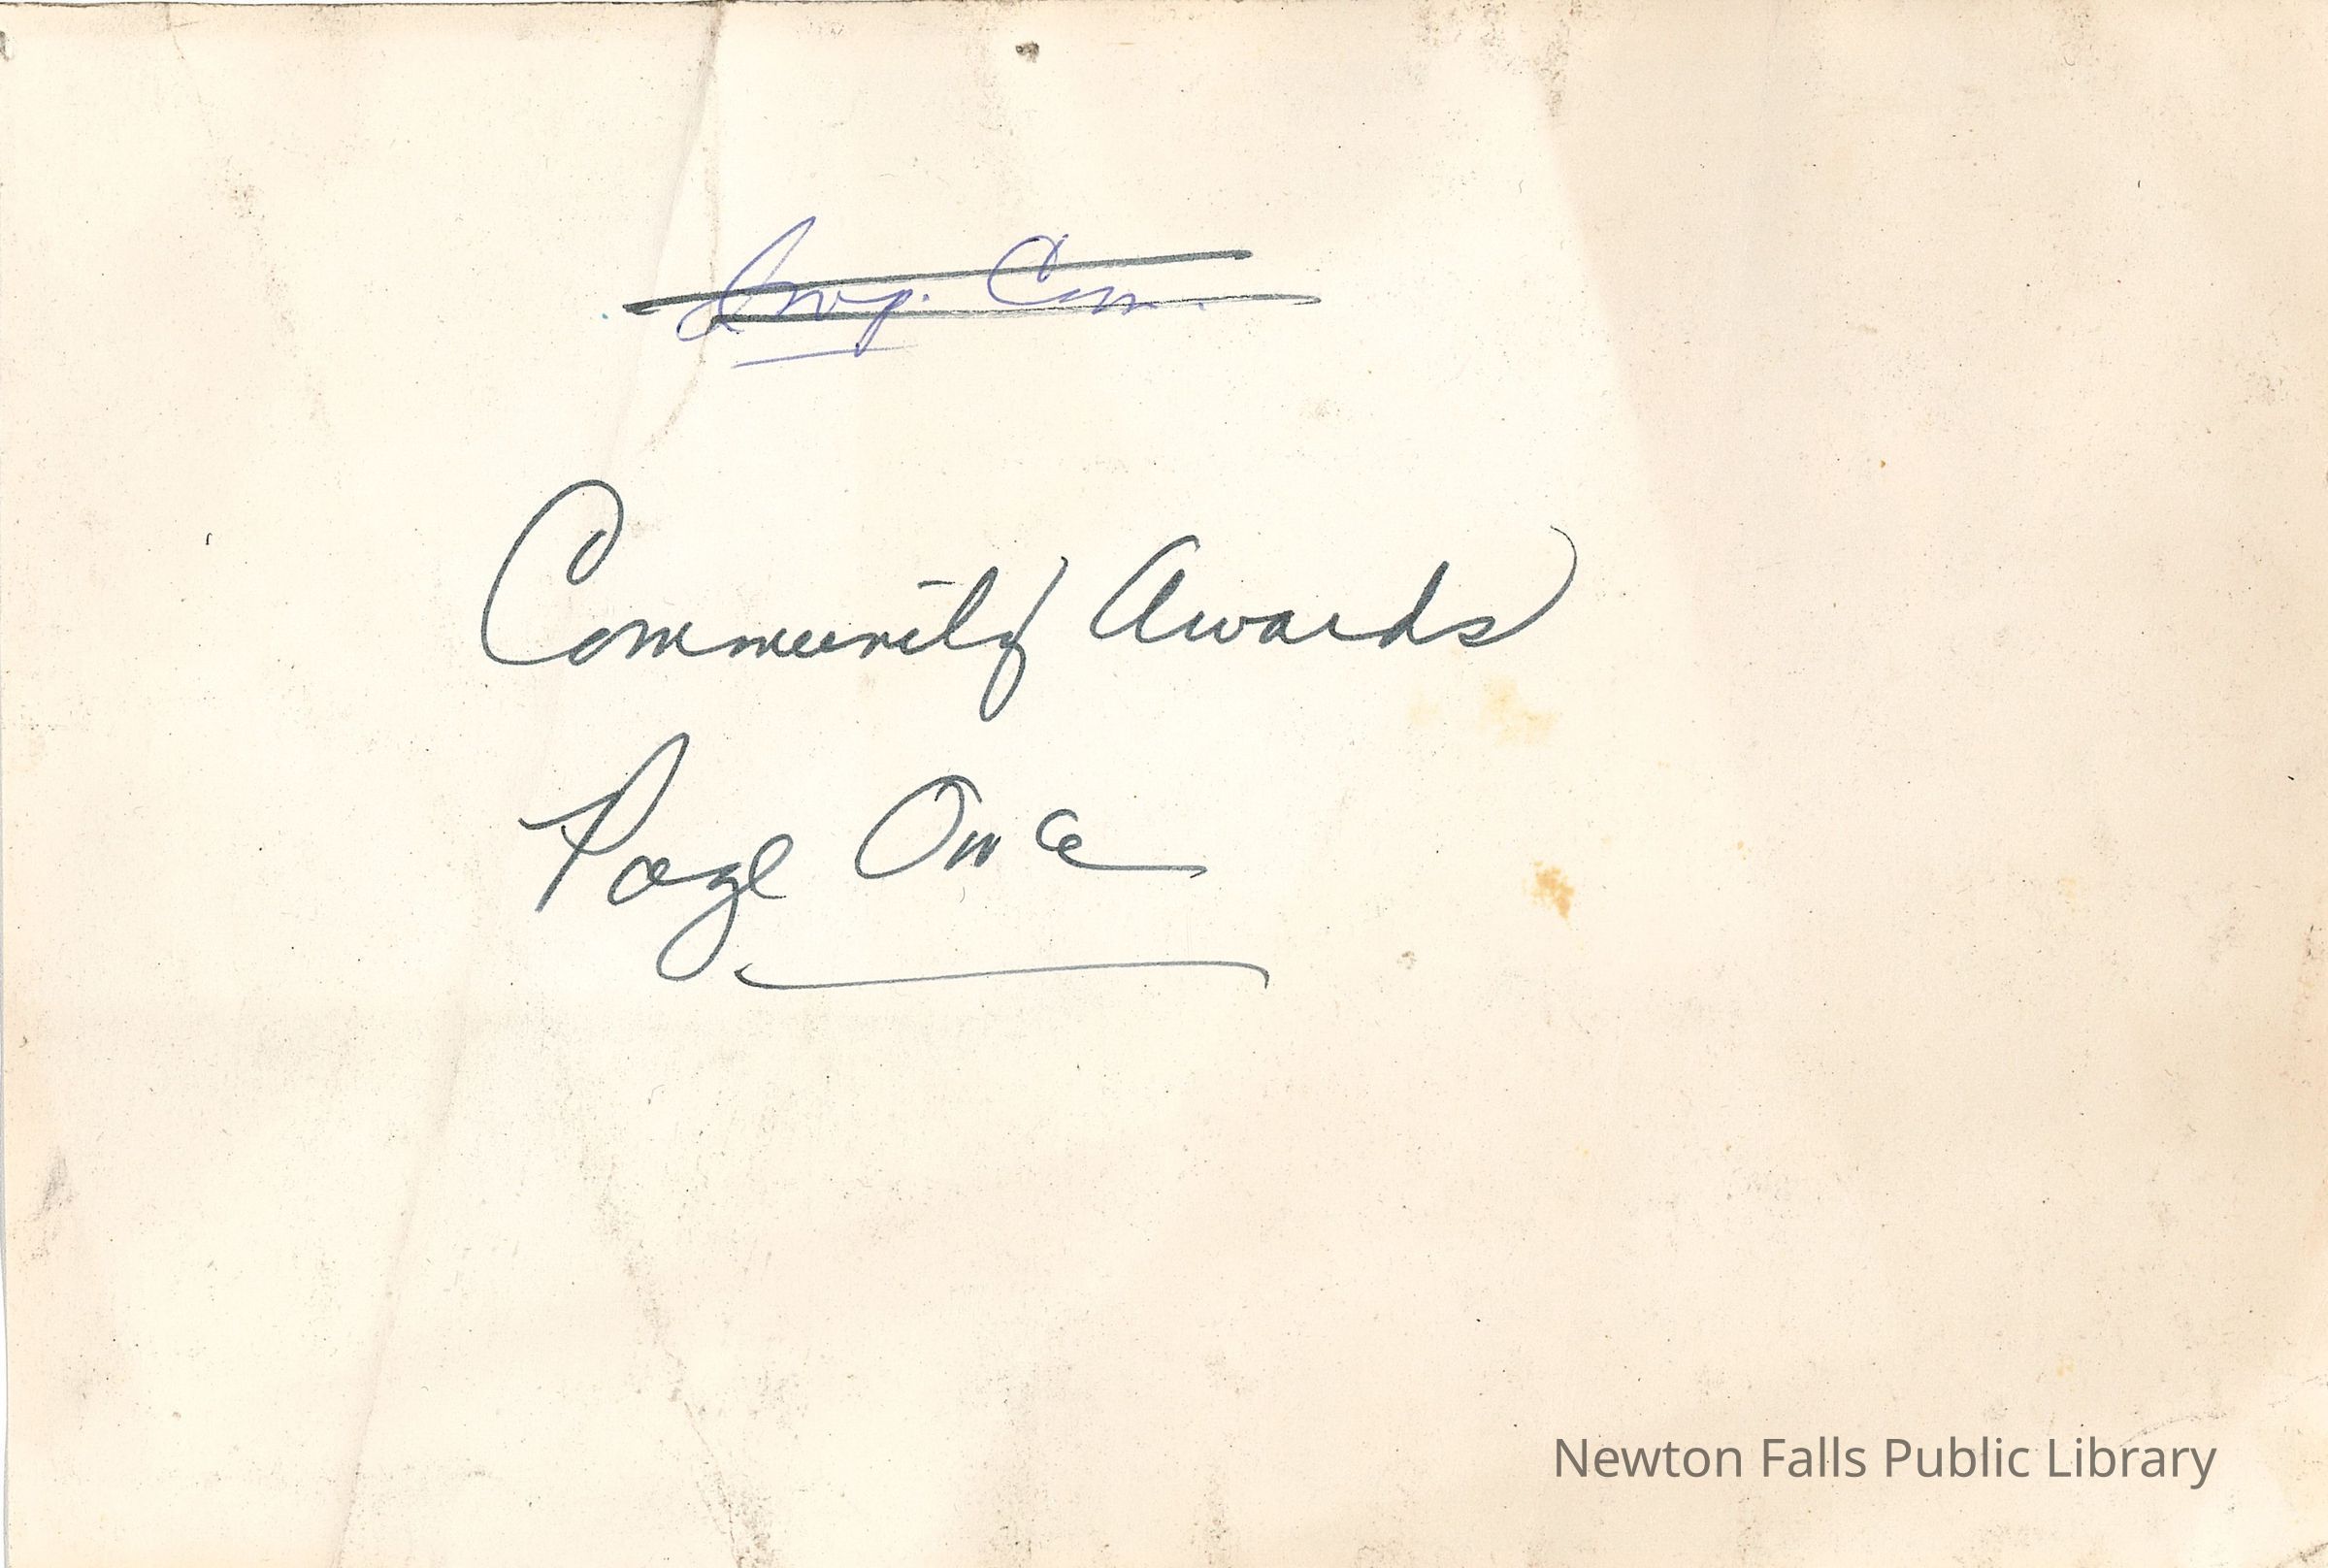 Community Awards
Page One
Newton Falls Public Library